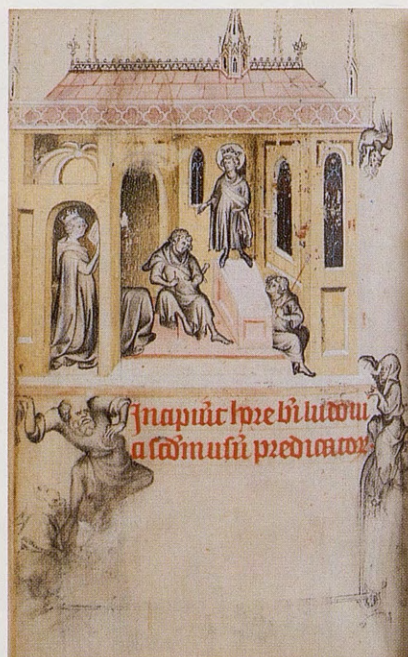 Incipiūt hore bī ludoui
ci scd̄m usū predicator